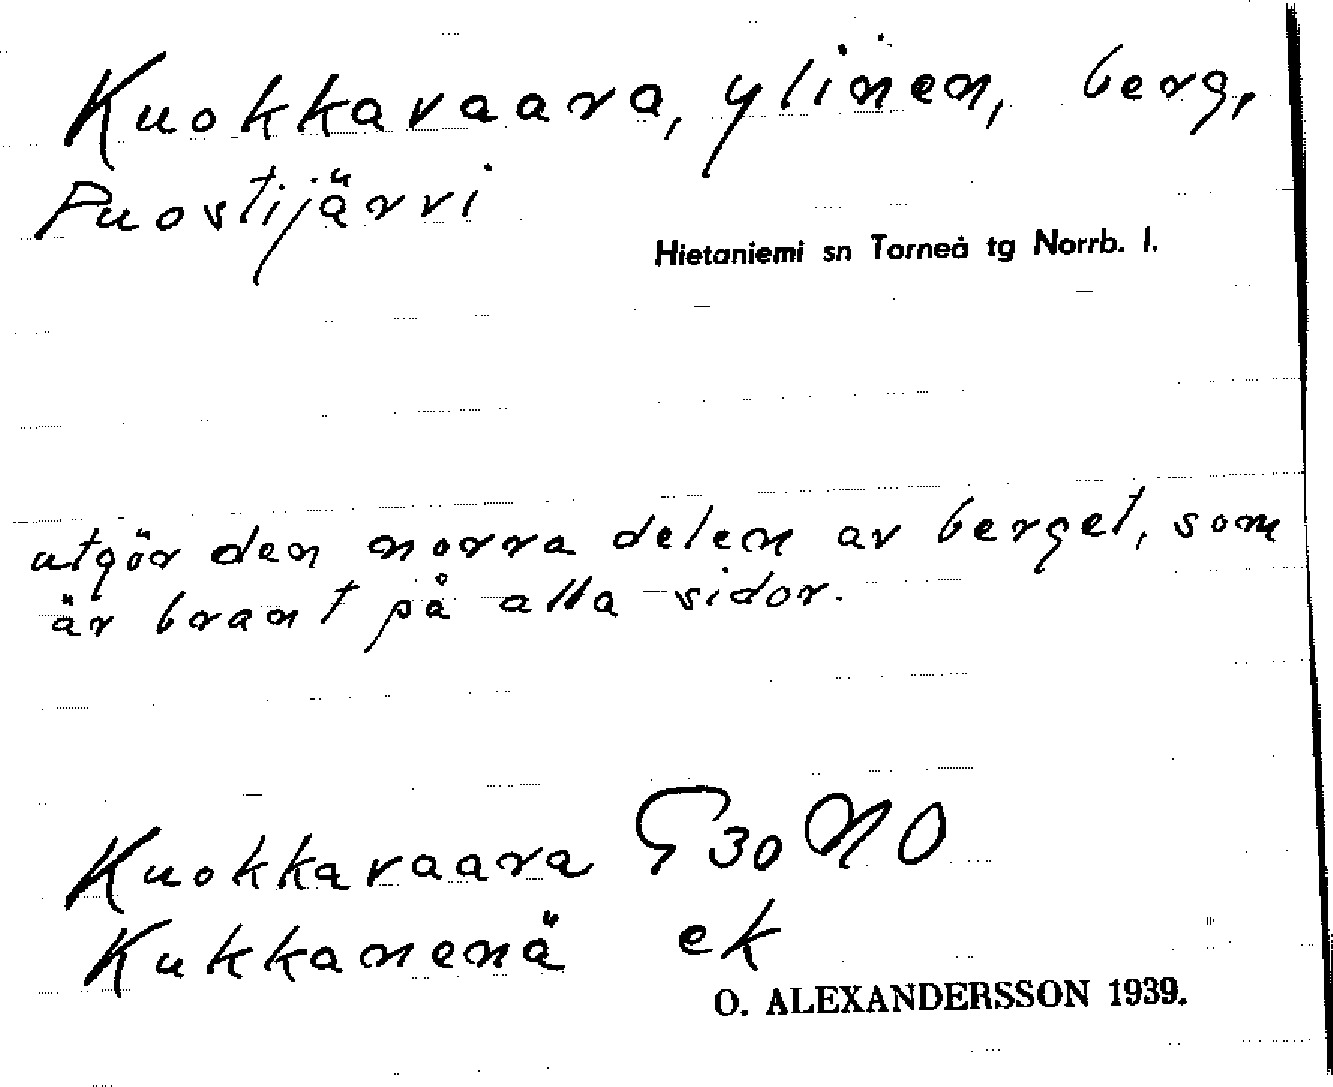 Kuokkavaara, ylinen, berg,
Puostijärvi
Hietaniemi sn Torneå tg Norrb. l.
utgör den norra delen av berget, som
är brant på alla sidor.
Kuokkavaara G30 NO
Kukkanenä ek
O. ALEXANDERSSON 1939.